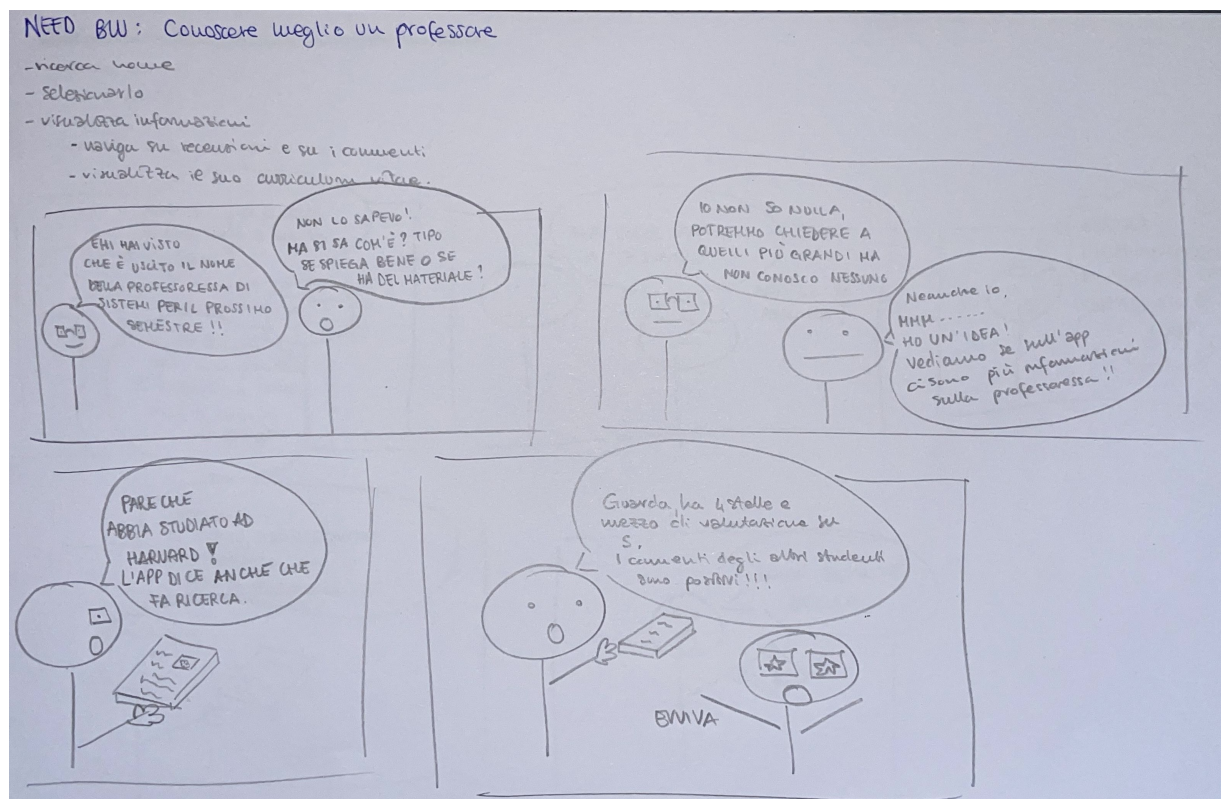 NEED BW: Conoscere meglio un professore
- ricerca nome
- selezionarlo
- visualizza informazioni
- naviga su recensioni e su i commenti
- visualizza il suo curriculum vitae.
EHI HAI VISTO
CHE È USCITO IL NOME
DELLA PROFESSORESSA DI
SISTEMI PER IL PROSSIMO
SEMESTRE !!
NON LO SAPEVO!
MA SI SA COM'È? TIPO
SE SPIEGA BENE O SE
HA DEL MATERIALE!
IO NON SO NULLA,
POTREMMO CHIEDERE A
QUELLI PIÙ GRANDI MA
NON CONOSCO NESSUNO
Neanche io,
MMM......
HO UN'IDEA!
Vediamo se sull'app
ci sono più informazioni
sulla professoressa!!
PARE CHE
ABBIA STUDIATO AD
HARVARD!
L'APP DICE ANCHE CHE
FA RICERCA.
Guarda, ha 4 stelle e
mezzo di valutazione su
5,
I commenti degli altri studenti
sono positivi!!!
EVVIVA